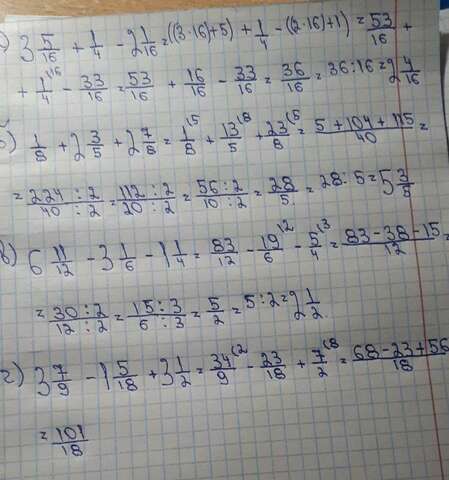 ) 3 5/16 + 1/4 - 2 1/16 = ((3·16)+5) + 1/4 - (2·16)+1) = 53/16 +
+ 1/4 ^16 - 33/16 = 53/16 + 16/16 - 33/16 = 36/16 = 36:16 = 2 4/16
б) 1/8 + 2 3/5 + 2 7/8 = 1/8 ^5 + 13/5 ^8 + 23/8 ^5 = 5+104+115/40 =
= 224:2/40:2 = 112:2/20:2 = 56:2/10:2 = 28/5 = 28:5 = 5 3/5
в) 6 11/12 - 3 1/6 - 1 1/4 = 83/12 - 19/6 ^2 - 5/4 ^3 = 83-38-15/12 =
= 30:2/12:2 = 15:3/6:3 = 5/2 = 5:2 = 2 1/2
г) 3 7/9 - 1 5/18 + 3 1/2 = 34/9 ^2 - 23/18 + 7/2 ^8 = 68-23+56/18
= 101/18